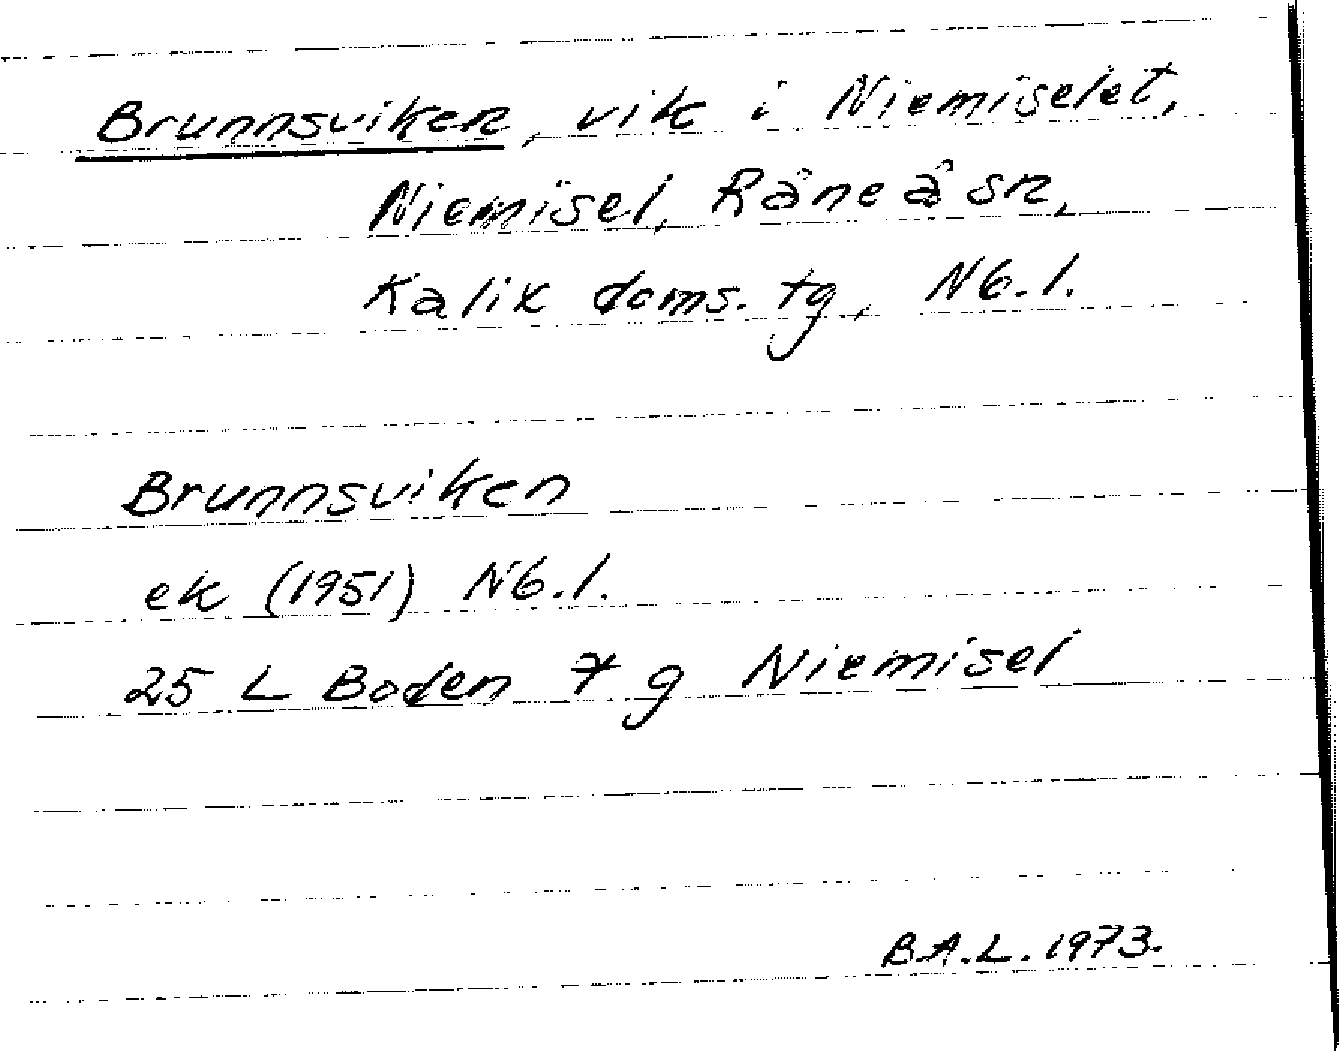 Brunnsviken, vik i Niemiselet,
Niemisel, Råneå sn,
Kalix doms. tg, Nb.l.
Brunnsviken
ek (1951) Nb.l.
25 L Boden 7 g Niemisel
B.A.L. 1973.